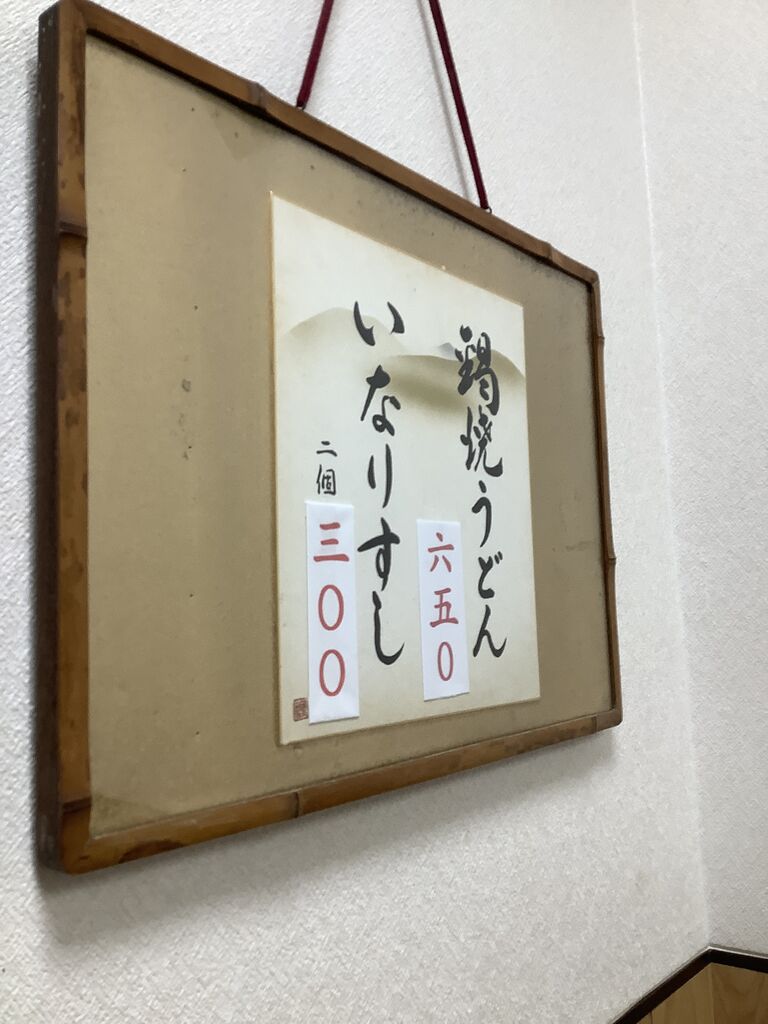 鍋焼うどん
六五〇
いなりすし
二個 三〇〇